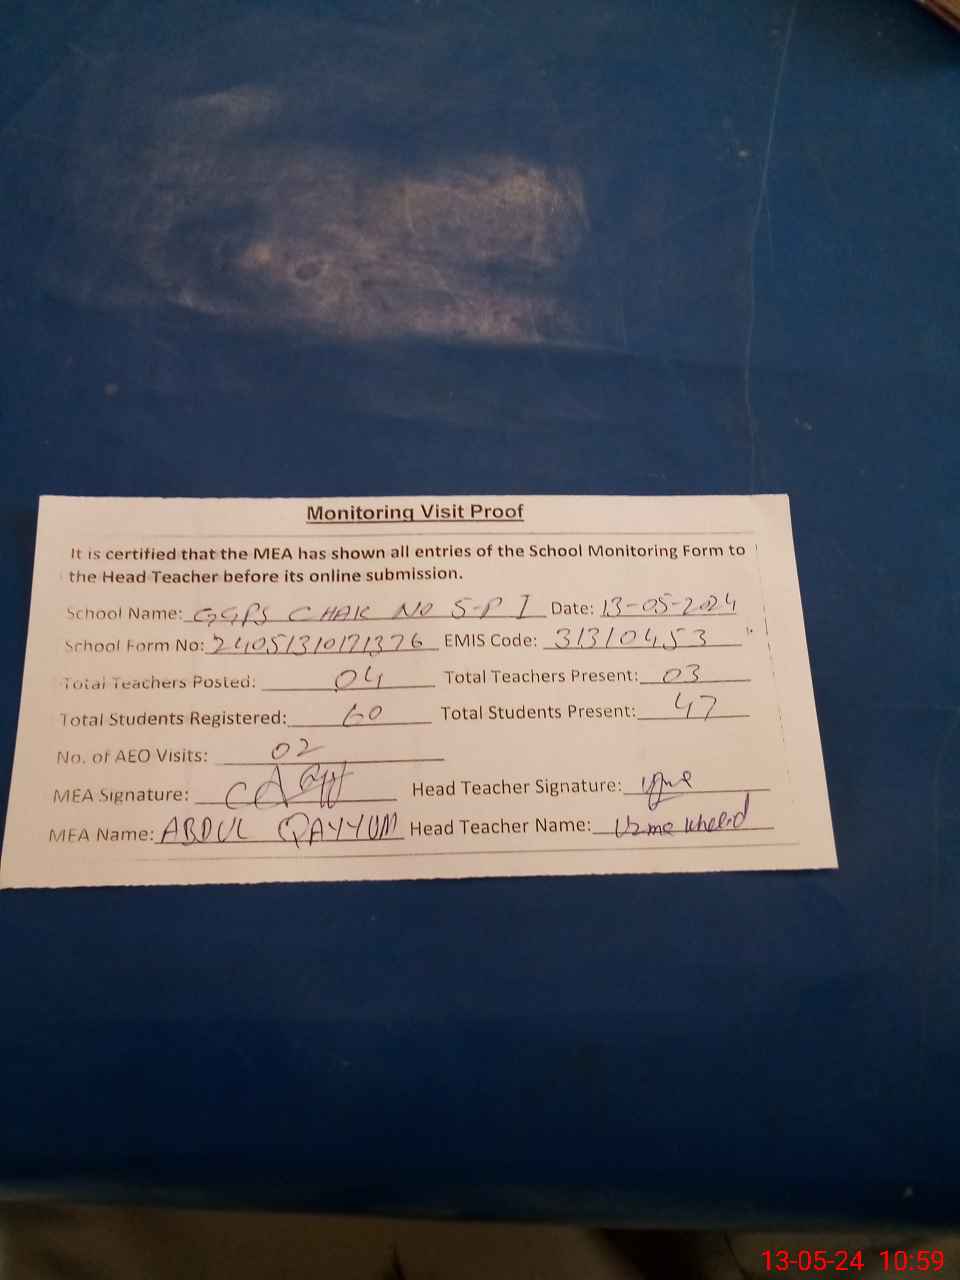 Monitoring Visit Proof
It is certified that the MEA has shown all entries of the School Monitoring Form to
the Head Teacher before its online submission.
School Name: GGPS CHAK NO 5-P I Date: 13-05-2024
School Form No: 24051310171376 EMIS Code: 31310453
Total Teachers Posted: 04 Total Teachers Present: 03
Total Students Registered: 60 Total Students Present: 47
No. of AEO Visits: 02
MEA Signature: Head Teacher Signature:
MEA Name: ABDUL QAYYUM Head Teacher Name: Uzma Khalid
13-05-24 10:59